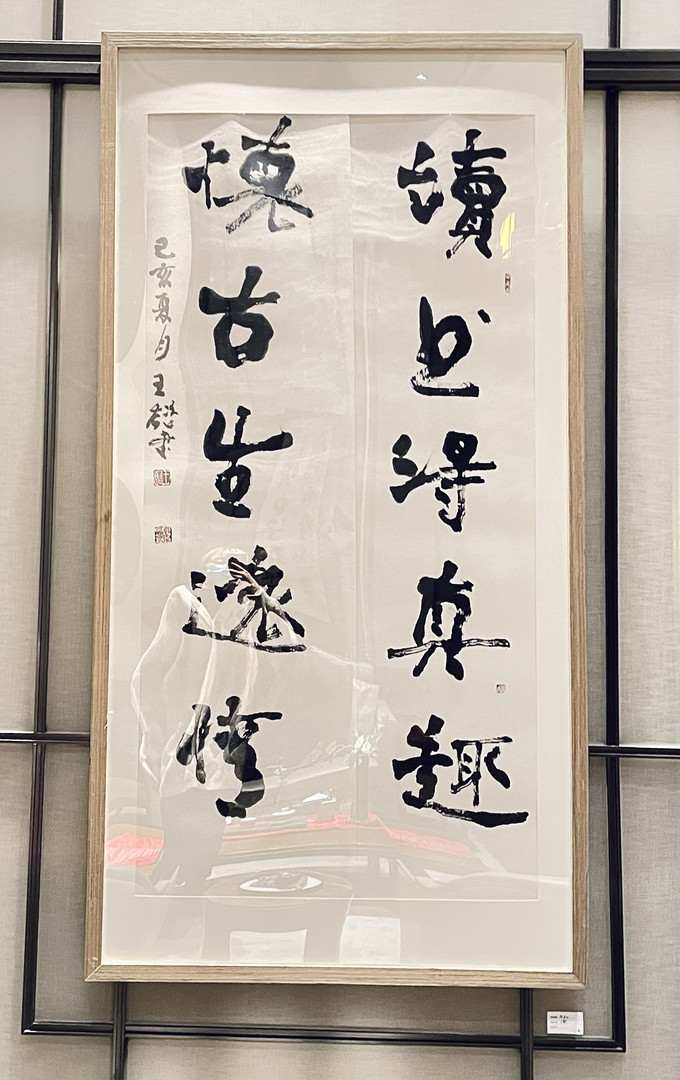 讀書得真趣
懷古生遠情
己亥夏月 王